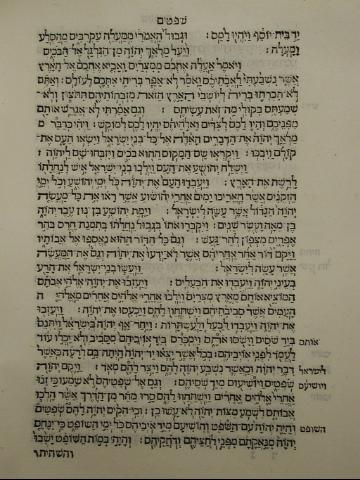 שפטים
יד בית יוסף ויהיו למס : וגבול האמרי ממעלה עקרבים מהסלע
ומעלה : ויעל מלאך יהוה מן הגלגל אל הבכים
ויאמר אעלה אתכם ממצרים ואביא אתכם אל הארץ
אשר נשבעתי לאבתיכם ואמר לא אפר בריתי אתכם לעולם : ואתם
לא תכרתו ברית ליושבי הארץ הזאת מזבחותיהם תתצון ולא
שמעתם בקולי מה זאת עשיתם : וגם אמרתי לא אגרש אותם
מפניכם והיו לכם לצדים ואלהיהם יהיו לכם למוקש : ויהי כדבר
מלאך יהוה את הדברים האלה אל כל בני ישראל וישאו העם את
קולם ויבכו : ויקראו שם המקום ההוא בכים ויזבחו שם ליהוה :
וישלח יהושע את העם וילכו בני ישראל איש לנחלתו
לרשת את הארץ : ויעבדו העם את יהוה כל ימי יהושע וכל ימי
הזקנים אשר האריכו ימים אחרי יהושוע אשר ראו את כל מעשה
יהוה הגדול אשר עשה לישראל : וימת יהושע בן נון עבד יהוה
בן מאה ועשר שנים : ויקברו אותו בגבול נחלתו בתמנת חרס בהר
אפרים מצפון להר געש : וגם כל הדור ההוא נאספו אל אבותיו
ויקם דור אחר אחריהם אשר לא ידעו את יהוה וגם את המעשה
אשר עשה לישראל : ויעשו בני ישראל את הרע
בעיני יהוה ויעבדו את הבעלים : ויעזבו את יהוה אלהי אבותם
המוציא אותם מארץ מצרים וילכו אחרי אלהים אחרים מאלהי
העמים אשר סביבותיהם וישתחוו להם ויכעסו את יהוה : ויעזבו
את יהוה ויעבדו לבעל ולעשתרות : ויחר אף יהוה בישראל ויתנם
ביד שסים וישסו אותם וימכרם ביד אויביהם מסביב ולא יכלו עוד
אותה
לעמד לפני אויביהם : בכל אשר יצאו יד יהוה היתה בם לרעה כאשר
דבר יהוה וכאשר נשבע יהוה להם ויצר להם מאד : ויקם יהוה
לישראל
שפטים ויושיעום מיד שסיהם : וגם אל שפטיהם לא שמעו כי זנו
ויושיעם
אחרי אלהים אחרים וישתחוו להם סרו מהר מן הדרך אשר הלכו
אבותם לשמע מצות יהוה לא עשו כן : וכי הקים יהוה להם שפטים
והיה יהוה עם השפט והושיעם מיד איביהם כל ימי השופט כי ינחם
השופט
יהוה מנאקתם מפני לחציהם ודחקיהם : והיה במות השופט ישבו
והשחיתו